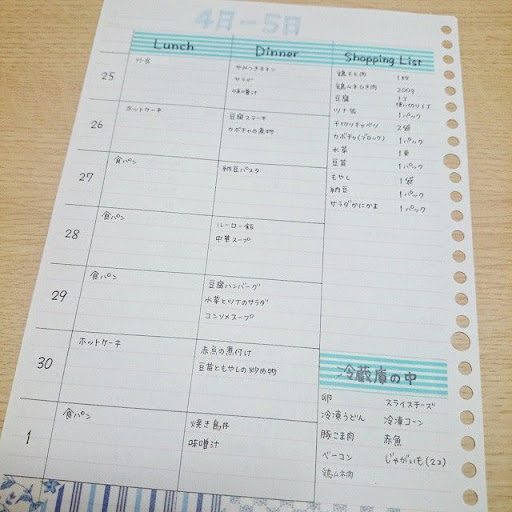 4日-5日
Lunch Dinner Shopping List
25
外食
やみつきチキン
サラダ
味噌汁
26
ホットケーキ
豆腐ステーキ
カボチャの煮物
27
食パン
納豆パスタ
28
食パン
ルーロー飯
中華スープ
29
食パン
豆腐ハンバーグ
水菜とツナのサラダ
コンソメスープ
30
ホットケーキ
赤魚の煮付け
豆苗ともやしの炒め物
1
食パン
焼き鳥丼
味噌汁
鶏もも肉 1枚
鶏ひき肉 200g
豆腐
ツナ缶 1パック
千切りキャベツ 2袋
カボチャ(ブロック) 1パック
水菜 1束
豆苗 1パック
もやし 1袋
納豆 1パック
サラダかにかま 1パック
冷蔵庫の中
卵 スライスチーズ
冷凍うどん 冷凍コーン
豚こま肉 赤魚
ベーコン じゃがいも(2コ)
鶏ムネ肉